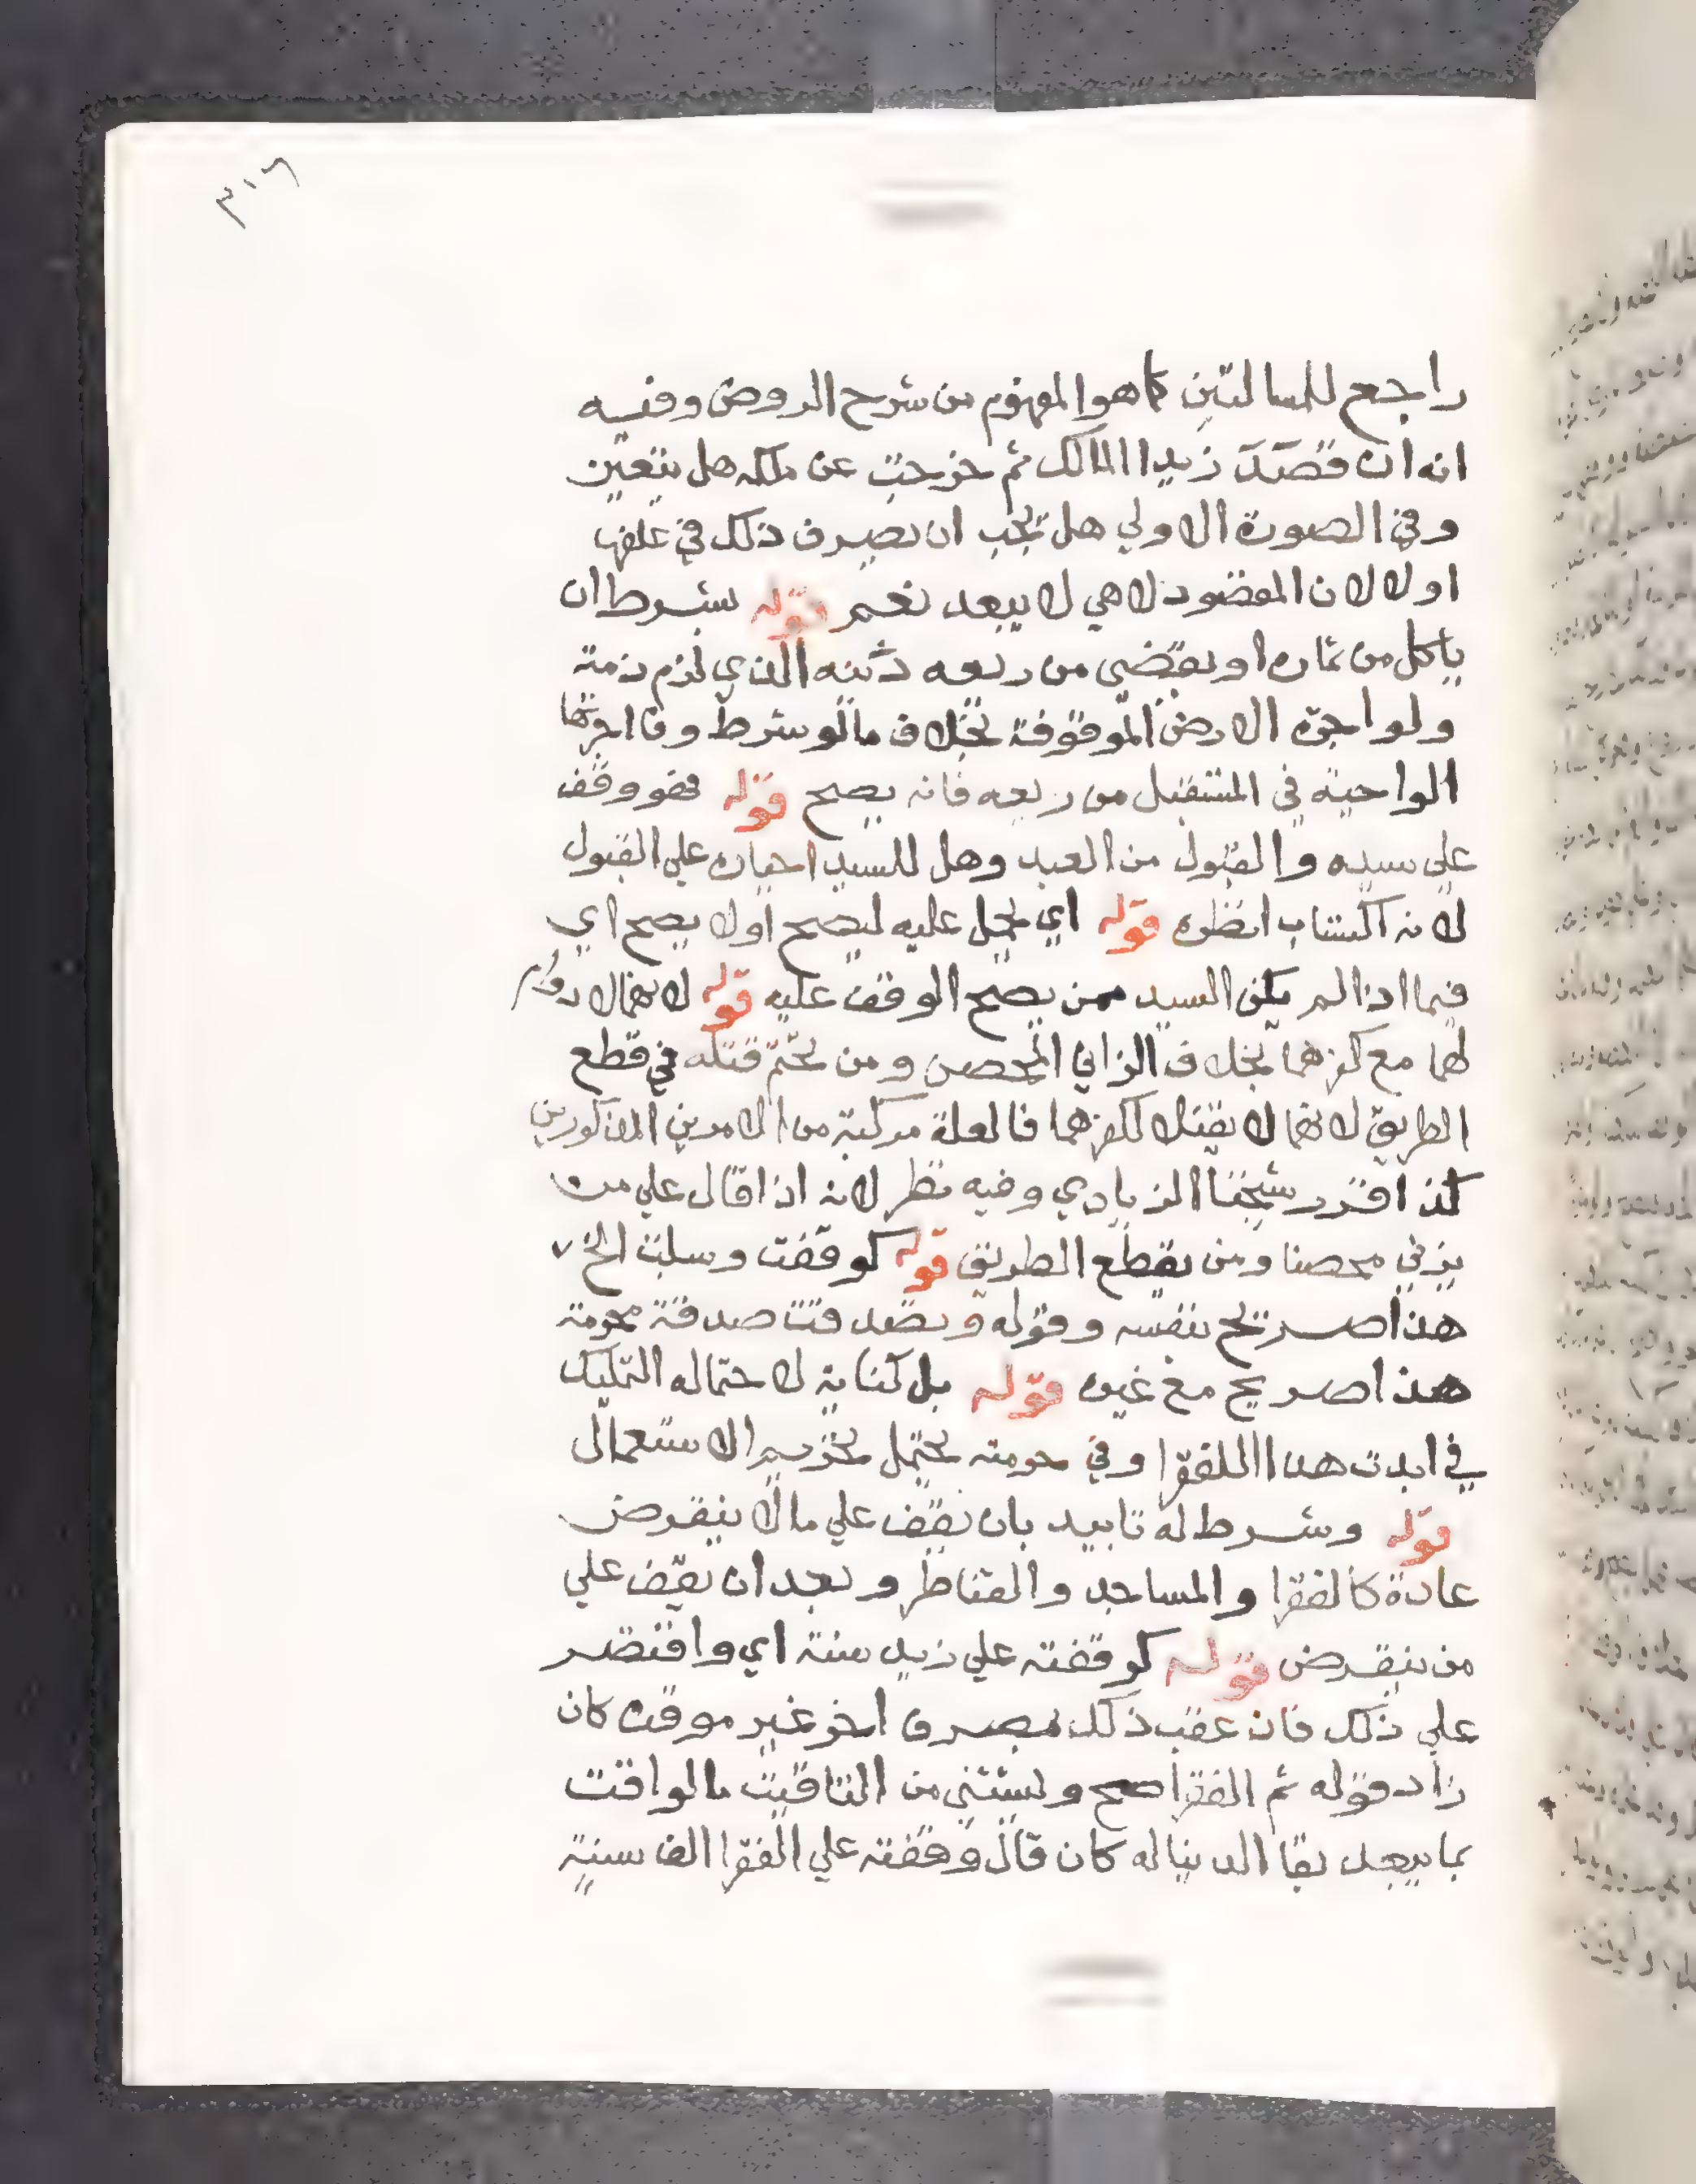 ٣١٦
راجع للمسالتين كما هو المفهوم من شرح الروض وفيه
انه ان قصد زيدا المالك ثم خرجت عن ملكه هل يتعين
وفي الصورة الاولي هل يجب ان يصرف ذلك في علفها
اولا لان المقصود لا هي لا يبعد نعم قوله بشرط ان
ياكل من ثماره او يقضي من ريعه دينه الذي لزم ذمة
ولو اجرة الارض الموقوفة بخلاف ما لو شرط وفا اجرتها
الواجبة في المستقبل من ريعه فانه يصح قوله فهو وقف
علي سيده والقبول من العبد وهل للسيد اجباره علي القبول
لانه اكتساب انظره قوله اي يحمل عليه ليصح اولا يصح اي
فيما اذا لم يكن السيد ممن يصح الوقف عليه قوله لانهما لا دوام
لهما مع كفرهما بخلاف الزاني المحصن ومن تحتم قتله في قطع
الطريق لانهما لا يقتلا لكفرهما فالعلة مركبة من الامرين المذكورين
كذا قرر شيخنا الزيادي وفيه نظر لانه اذا قال علي من
يزني محصنا ومن يقطع الطريق قوله كوقفت وسبلت الخ
هذا صريح بنفسه وقوله وتصدقت صدقة محرمة
هذا صريح مع غيره قوله بل كناية لاحتماله التمليك
في ابدت هذا للفقرا وفي حرمته يحتمل تحريم الاستعمال
قوله وشرط له تابيد بان يقف علي ما لا ينقرض
عادة كالفقرا والمساجد والقناطر وبعد ان يقف علي
من ينقرض قوله كوقفته علي زيد سنة اي واقتصر
علي ذلك فان عقب ذلك بمصرف اخر غير موقت كان
زاد قوله ثم الفقرا صح ويستثني من التاقيت ما لو اقت
بما يبعد بقا الدنيا له كان قال وقفته علي الفقرا الف سنة